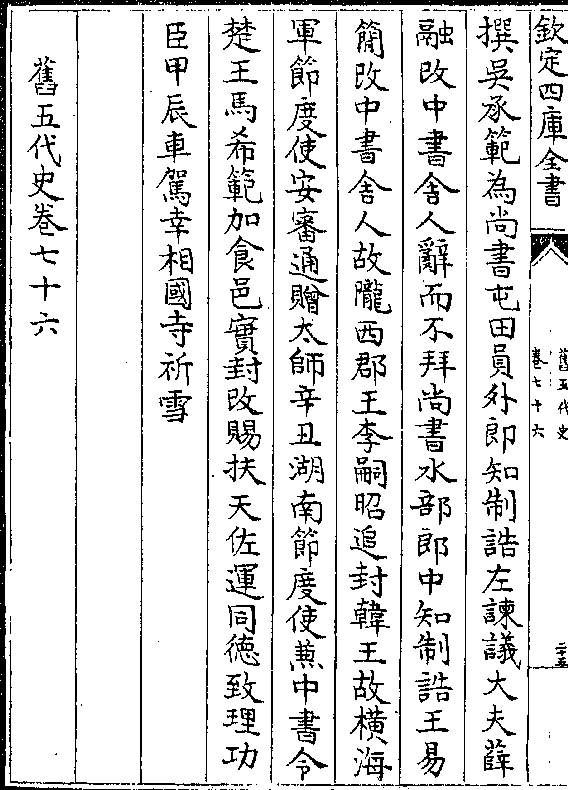 欽定四庫全書
舊五代史
卷七十六
二十五
撰吳承範為尚書屯田員外郎知制誥左諫議大夫薛
融改中書舍人辭而不拜尚書水部郎中知制誥王易
簡改中書舍人故隴西郡王李嗣昭追封韓王故橫海
軍節度使安審通贈太師辛丑湖南節度使兼中書令
楚王馬希範加食邑實封改賜扶天佐運同德致理功
臣甲辰車駕幸相國寺祈雪
舊五代史卷七十六